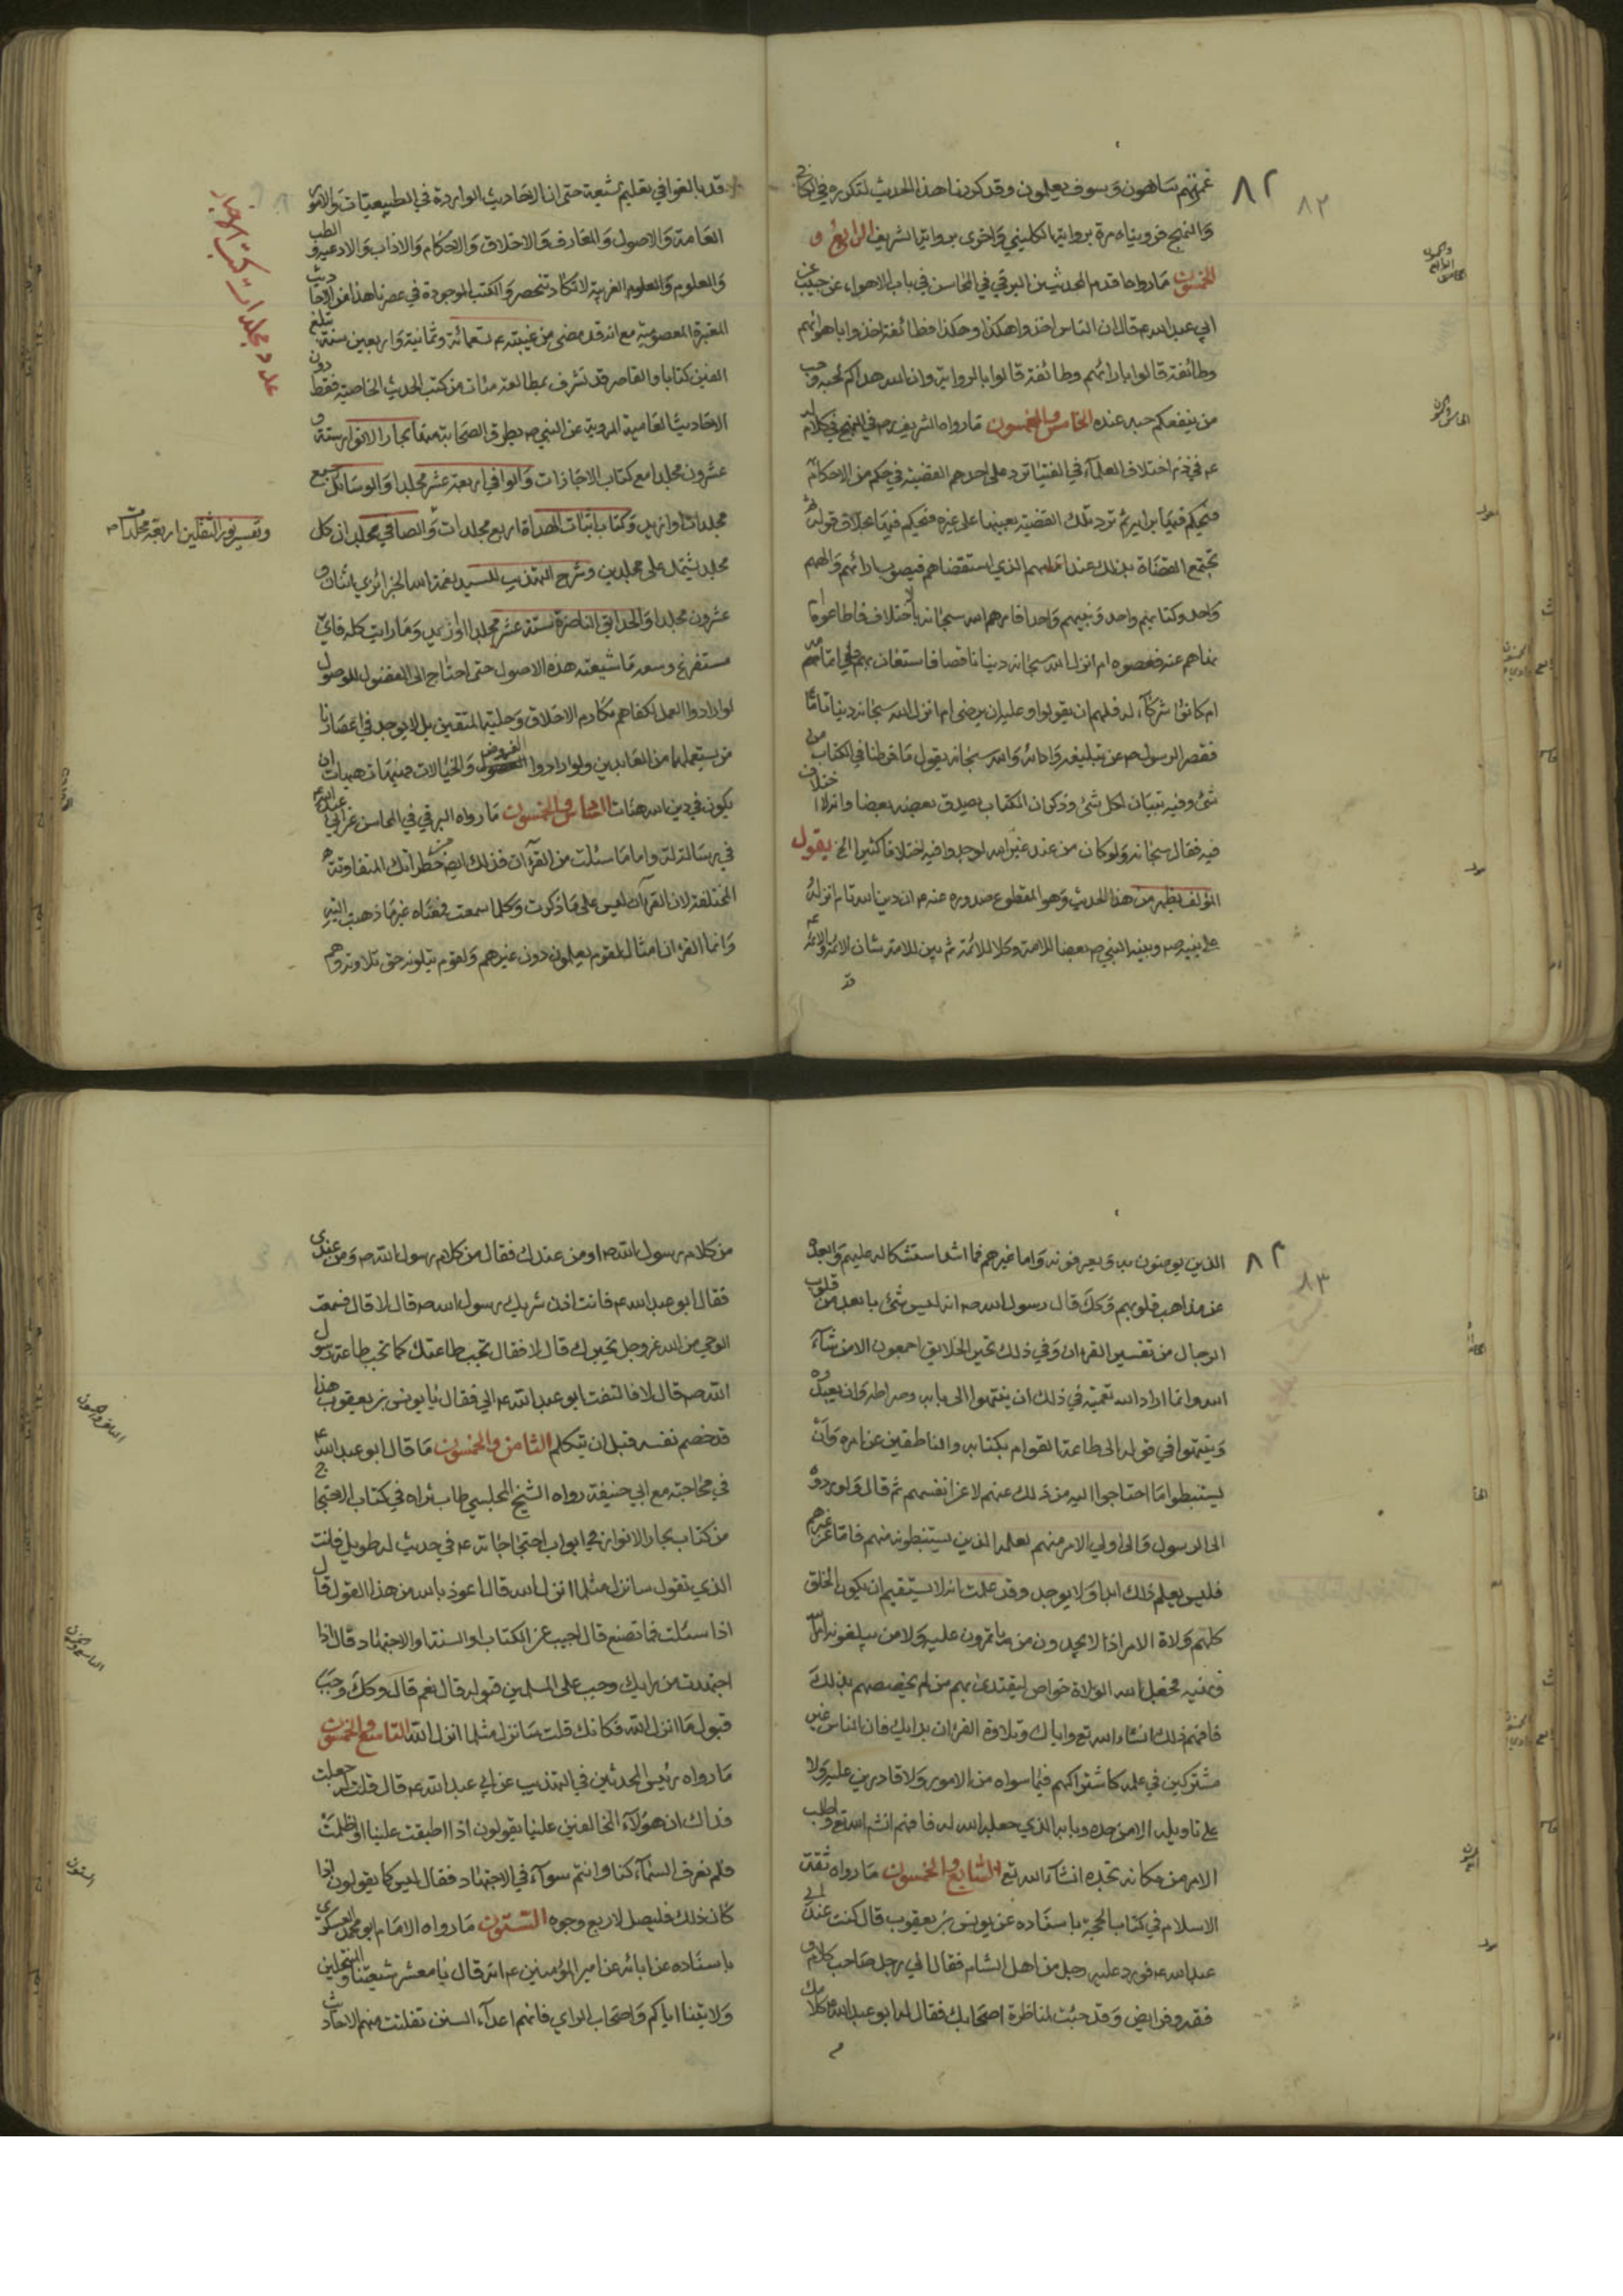 غمرتهم ساهون وسوف يعلمون وقد كررنا هذا الحديث لتكرره في
والنهج فرويناه مرة برواية الكليني واخرى برواية الشريف الرابع و
الخمسون ما رواه اقدم المحدثين البرقي في المحاسن في باب الاهواء عن حبيب عن
ابي عبد الله ع قال ان الناس اخذوا هكذا وهكذا فطائفة اخذوا باهوائهم
وطائفة قالوا بارائهم وطائفة قالوا بالرواية وان الله هداكم لحبه وحب
من ينفعكم حبه عنده الخامس والخمسون ما رواه الشريف رض في النهج في كلام له
ع في ذم اختلاف العلماء في الفتيا ترد على احدهم القضية في حكم من الاحكام
فيحكم فيها برايه ثم ترد تلك القضية بعينها على غيره فيحكم فيها بخلاف قوله ثم
تجتمع القضاة بذلك عند امامهم الذي استقضاهم فيصوب ارائهم والههم
واحد وكتابهم واحد ونبيهم واحد افامرهم الله سبحانه بالاختلاف فاطاعوه ام
نهاهم عنه فعصوه ام انزل الله سبحانه دينا ناقصا فاستعان بهم على اتمامه
ام كانوا شركاء له فلهم ان يقولوا وعليه ان يرضى ام انزل الله سبحانه دينا تاما
فقصر الرسول ص عن تبليغه وادائه والله سبحانه يقول ما فرطنا في الكتاب من
شئ وفيه تبيان لكل شئ وذكر ان الكتاب يصدق بعضه بعضا وانه لا اختلاف
فيه فقال سبحانه ولو كان من عند غير الله لوجدوا فيه اختلافا كثيرا الخ يقول
المؤلف يظهر من هذا الحديث وهو المقطوع صدوره عنه ع ان دين الله تام انزله
على نبيه ص وبينه النبي ص بعضا للامة وكلا للائمة ثم بين للامة شان الائمة والائمة ع
قد
قد بالغوا في تعليم شيعته حتى ان الاحاديث الواردة في الطبيعيات والامور
العامة والاصول والمعارف والاخلاق والاحكام والاداب والادعية والطب
والعلوم والعلوم الغريبة لا تكاد تنحصر والكتب الموجودة في عصرنا هذا من الاحاديث
المعتبرة المعصومية مع انه قد مضى من غيبته ع تسعمائة وثمانية واربعين سنة تبلغ
الفين كتابا والقاصر قد تشرف بمطالعة مئات من كتب الحديث الخاصية فقط دون
الاحاديث العامية المروية عن النبي ص بطرق الصحابة منها بحار الانوار ستة و
عشرون مجلدا مع كتاب الاجازات والوافي اربعة عشر مجلدا والوسائل سبع
مجلدات او ازيد وكتاب اثبات الهداة اربع مجلدات والصافي مجلد ان كل
وتفسير نور الثقلين اربعة مجلدات
مجلد يشتمل على مجلدين وشرح التهذيب للسيد نعمة الله الجزائري اثنان و
عشرون مجلدا والحدائق الناضرة ستة عشر مجلدا او ازيد وما رايت كله فاي
مستفرغ وسعه ما شبعته هذه الاصول حتى احتاج الى الفضول للوصول
لو ارادوا العمل لكفاهم مكارم الاخلاق وحلية المتقين بل لا يوجد في اعصارنا
من يستعملها من العابدين ولو ارادوا الفروض والخيالات فهيهات هيهات ان
يكون في دين الله هنات السادس والخمسون ما رواه البرقي في المحاسن عن ابي عبد الله ع
في رسالة له واما ما سئلت من القرآن فذلك ايضا من خطراتك المتفاوتة
المختلفة لان القرآن ليس على ما ذكرت وكلما سمعت فمعناه غير ما ذهبت اليه
وانما القران امثال لقوم يعلمون دون غيرهم ولقوم يتلونه حق تلاوته وهم
عدد مجلدات كتب الاخبار
٨٢
٨٢
الذين يومنون به ويعرفونه واما غيرهم فما اشد استشكاله عليهم وابعده
عن مذاهب قلوبهم وكك قال رسول الله ص انه ليس شئ بابعد من قلوب
الرجال من تفسير القران وفي ذلك تحير الخلايق اجمعون الا من شآء
الله وانما اراد الله بتعميته في ذلك ان ينتهوا الى بابه وصراطه وان يعبدوه
وينتهوا في قوله الى طاعة القوام بكتابه والناطقين عن امره وان
يستنبطوا ما احتاجوا اليه من ذلك عنهم لا عن انفسهم ثم قال ولو ردوه
الى الرسول والى اولي الامر منهم لعلمه الذين يستنبطونه منهم فاما عن غيرهم
فليس يعلم ذلك ابدا ولا يوجد وقد علمت انه لا يستقيم ان يكون الخلق
كلهم ولاة الامر اذا لا يجدون من ياتمرون عليه ولا من يبلغونه امر الله
ونهيه فجعل الله الولاة خواص ليقتدى بهم من لم يخصصهم بذلك
فافهم ذلك انشاء الله تع واياك وتلاوة القران برايك فان الناس غير
مشتركين في علمه كاشتراكهم فيما سواه من الامور ولا قادرين عليه ولا
على تاويله الا من حده وبابه الذي جعله الله له فافهم انش الله تع واطلب
الامر من مكانه تجده انشآء الله تع السابع والخمسون ما رواه ثقة
الاسلام في كتاب الحجة باسناده عن يونس بن يعقوب قال كنت عند ابي
عبد الله ع فورد عليه رجل من اهل الشام فقال اني رجل صاحب كلام و
فقه وفرايض وقد جئت لمناظرة اصحابك فقال له ابو عبد الله ع كلامك
من كلام رسول الله ص او من عندك فقال من كلام رسول الله ص ومن عندي
فقال ابو عبد الله ع فانت اذن شريك رسول الله ص قال لا قال فسمعت
الوحي من الله عز وجل يخبرك قال لا فقال تجب طاعتك كما تجب طاعة رسول
الله ص قال لا فالتفت ابو عبد الله ع الي فقال يا يونس بن يعقوب هذا
قد خصم نفسه قبل ان يتكلم الثامن والخمسون ما قال ابو عبد الله ع
في محاجته مع ابي حنيفة رواه الشيخ المجلسي طاب ثراه في كتاب الاحتجاج
من كتاب بحار الانوار في ابواب احتجاجاته ع في حديث له طويل فانت
الذي تقول سانزل مثل ما انزل الله قال اعوذ بالله من هذا القول قال
اذا سئلت فما تصنع قال اجيب عن الكتاب او السنة او الاجتهاد قال اذا
اجتهدت من رايك وجب على المسلمين قبوله قال نعم قال وكك وجب
قبول ما انزل الله فكانك قلت سانزل مثل ما انزل الله التاسع والخمسون
ما رواه رئيس المحدثين في التهذيب عن ابي عبد الله ع قال قلت له جعلت
فداك ان هؤلآء المخالفين علينا يقولون اذا اطبقت علينا او اظلمت
فلم نعرف السمآء كنا وانتم سوآء في الاجتهاد فقال ليس كما يقولون اذا
كان ذلك فليصل لاربع وجوه الستون ما رواه الامام ابو محمد العسكري
باسناده عن ابائه عن امير المؤمنين ع انه قال يا معشر شيعتنا والمنتحلين
ولايتنا اياكم واصحاب الراي فانهم اعدآء السنن تفلتت منهم الاحاديث
٨٣
٨٣
السابع وخمسون
الستون